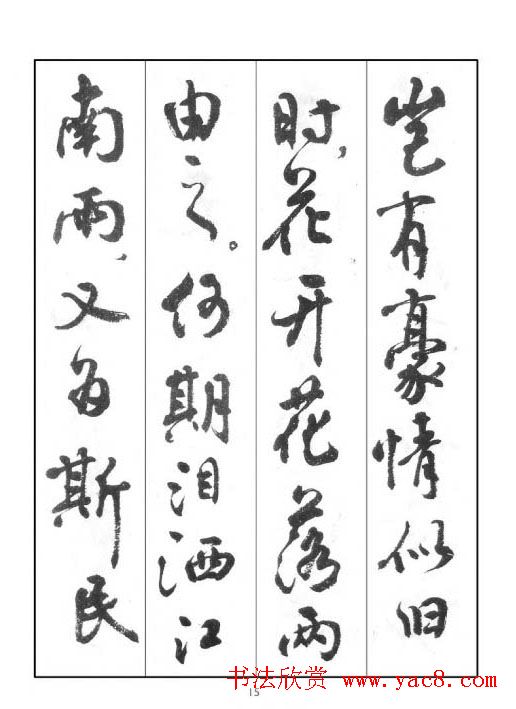 岂有豪情似旧
时,花开花落两
由之。何期泪洒江
南雨,又为斯民
书法欣赏 www.yac8.com
15